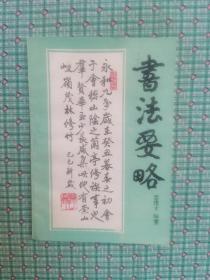 書法要略
永和九年歲在癸丑暮春之初會
于會稽山陰之蘭亭修禊事也
羣賢畢至少長咸集此地有崇山
峻嶺茂林修竹